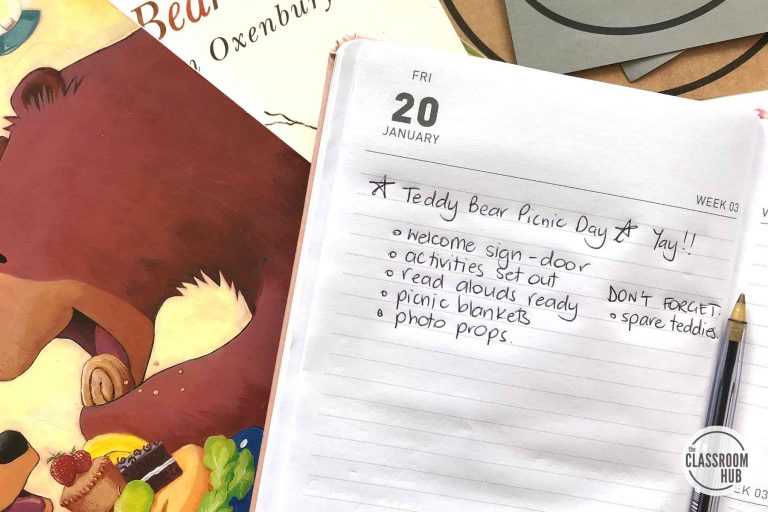 Bear
Oxenbury
FRI
20
JANUARY
WEEK 03
☆ Teddy Bear Picnic Day ☆ Yay!!
• welcome sign - door
• activities set out
• read alouds ready
• picnic blankets
• photo props.
DON'T FORGET:
• spare teddies.
the
CLASSROOM
HUB
EK 03